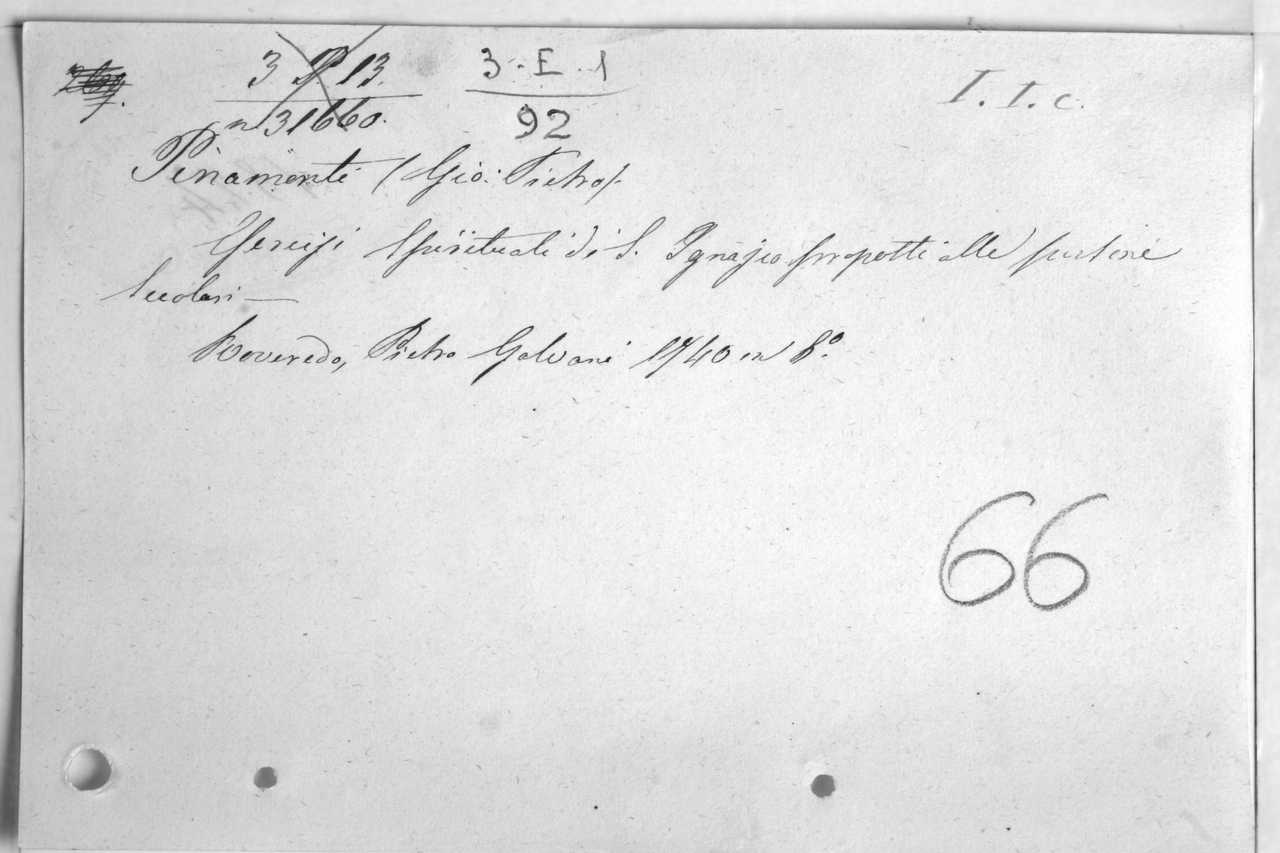 3 P 13. 3-E-1 I. I. c.
n 31660. 92
Pinamonti (Gio: Pietro).
Esercizi Spirituali di S. Ignazio proposti alle persone
secolari —
Roveredo, Pietro Galvani 1740 in 8.º
66